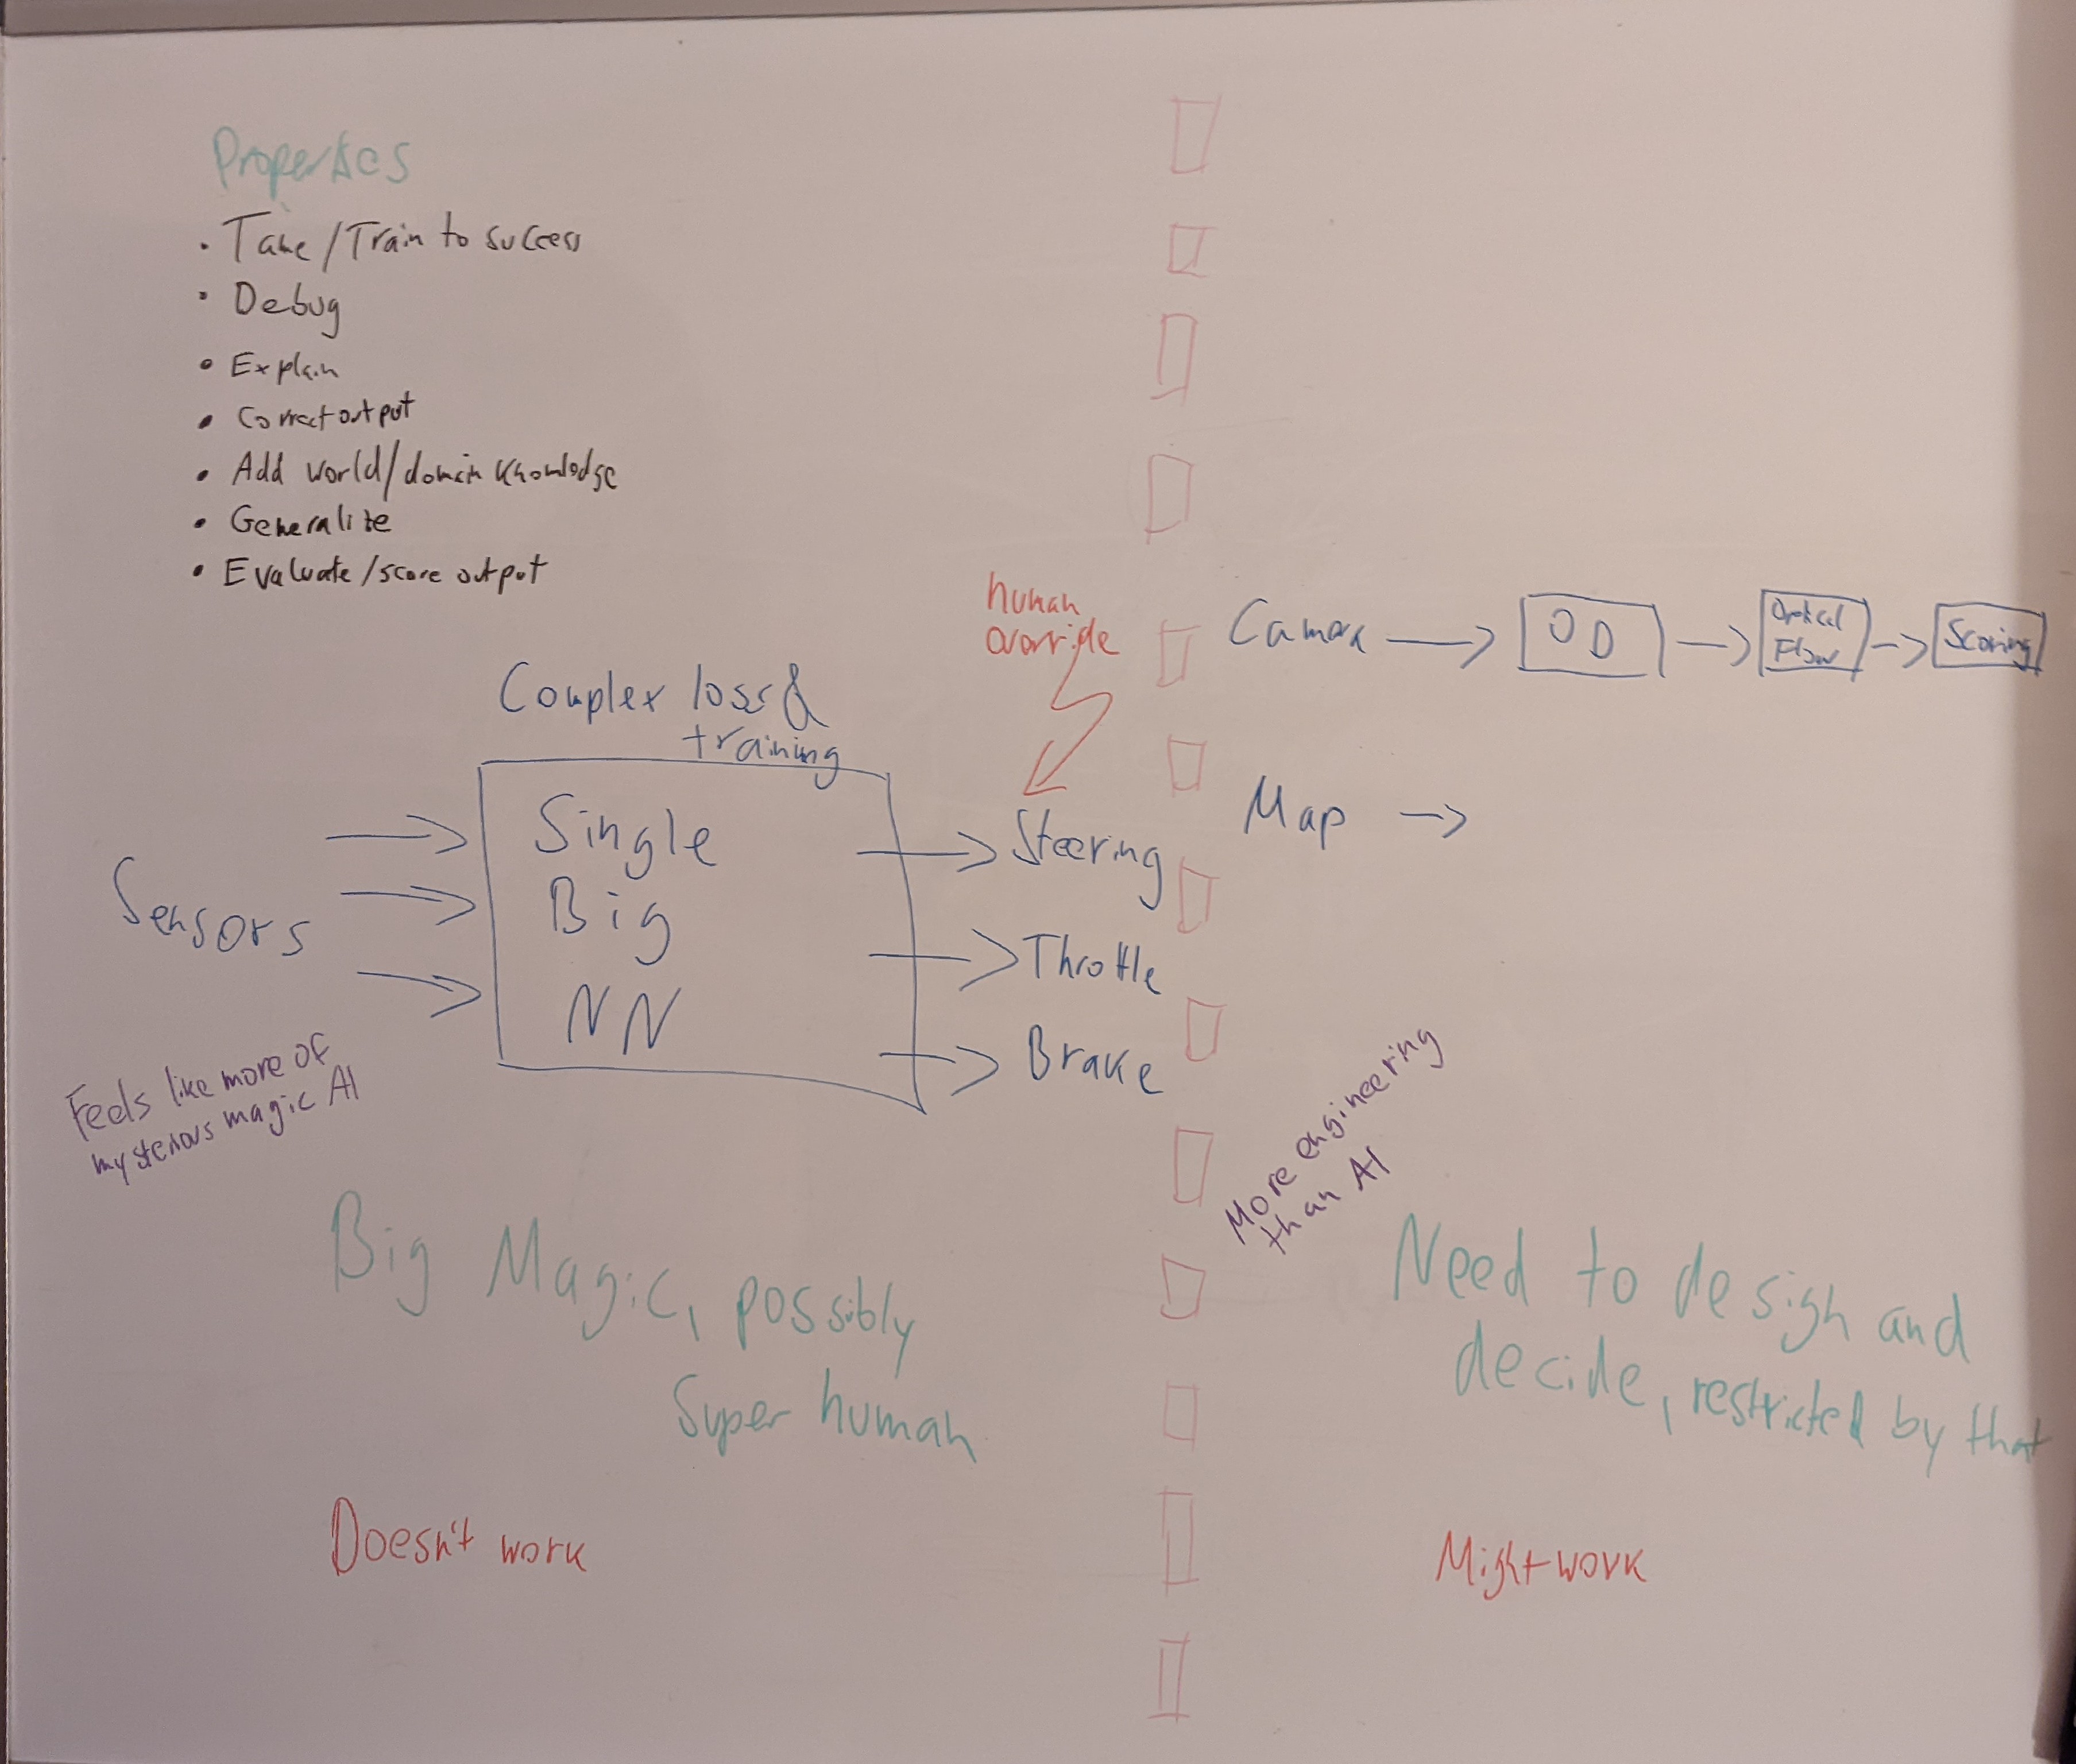 Properties
• Take/Train to success
• Debug
• Explain
• Correct output
• Add world/domain knowledge
• Generalize
• Evaluate/score output
human
override
Complex loss &
training
Sensors
Single
Big
NN
Steering
Throttle
Brake
Feels like more of
mysterious magic AI
Big Magic, possibly
Super human
Doesn't work
Camera
OD
Optical
Flow
Scoring
Map
More engineering
than AI
Need to design and
decide, restricted by that
Might work